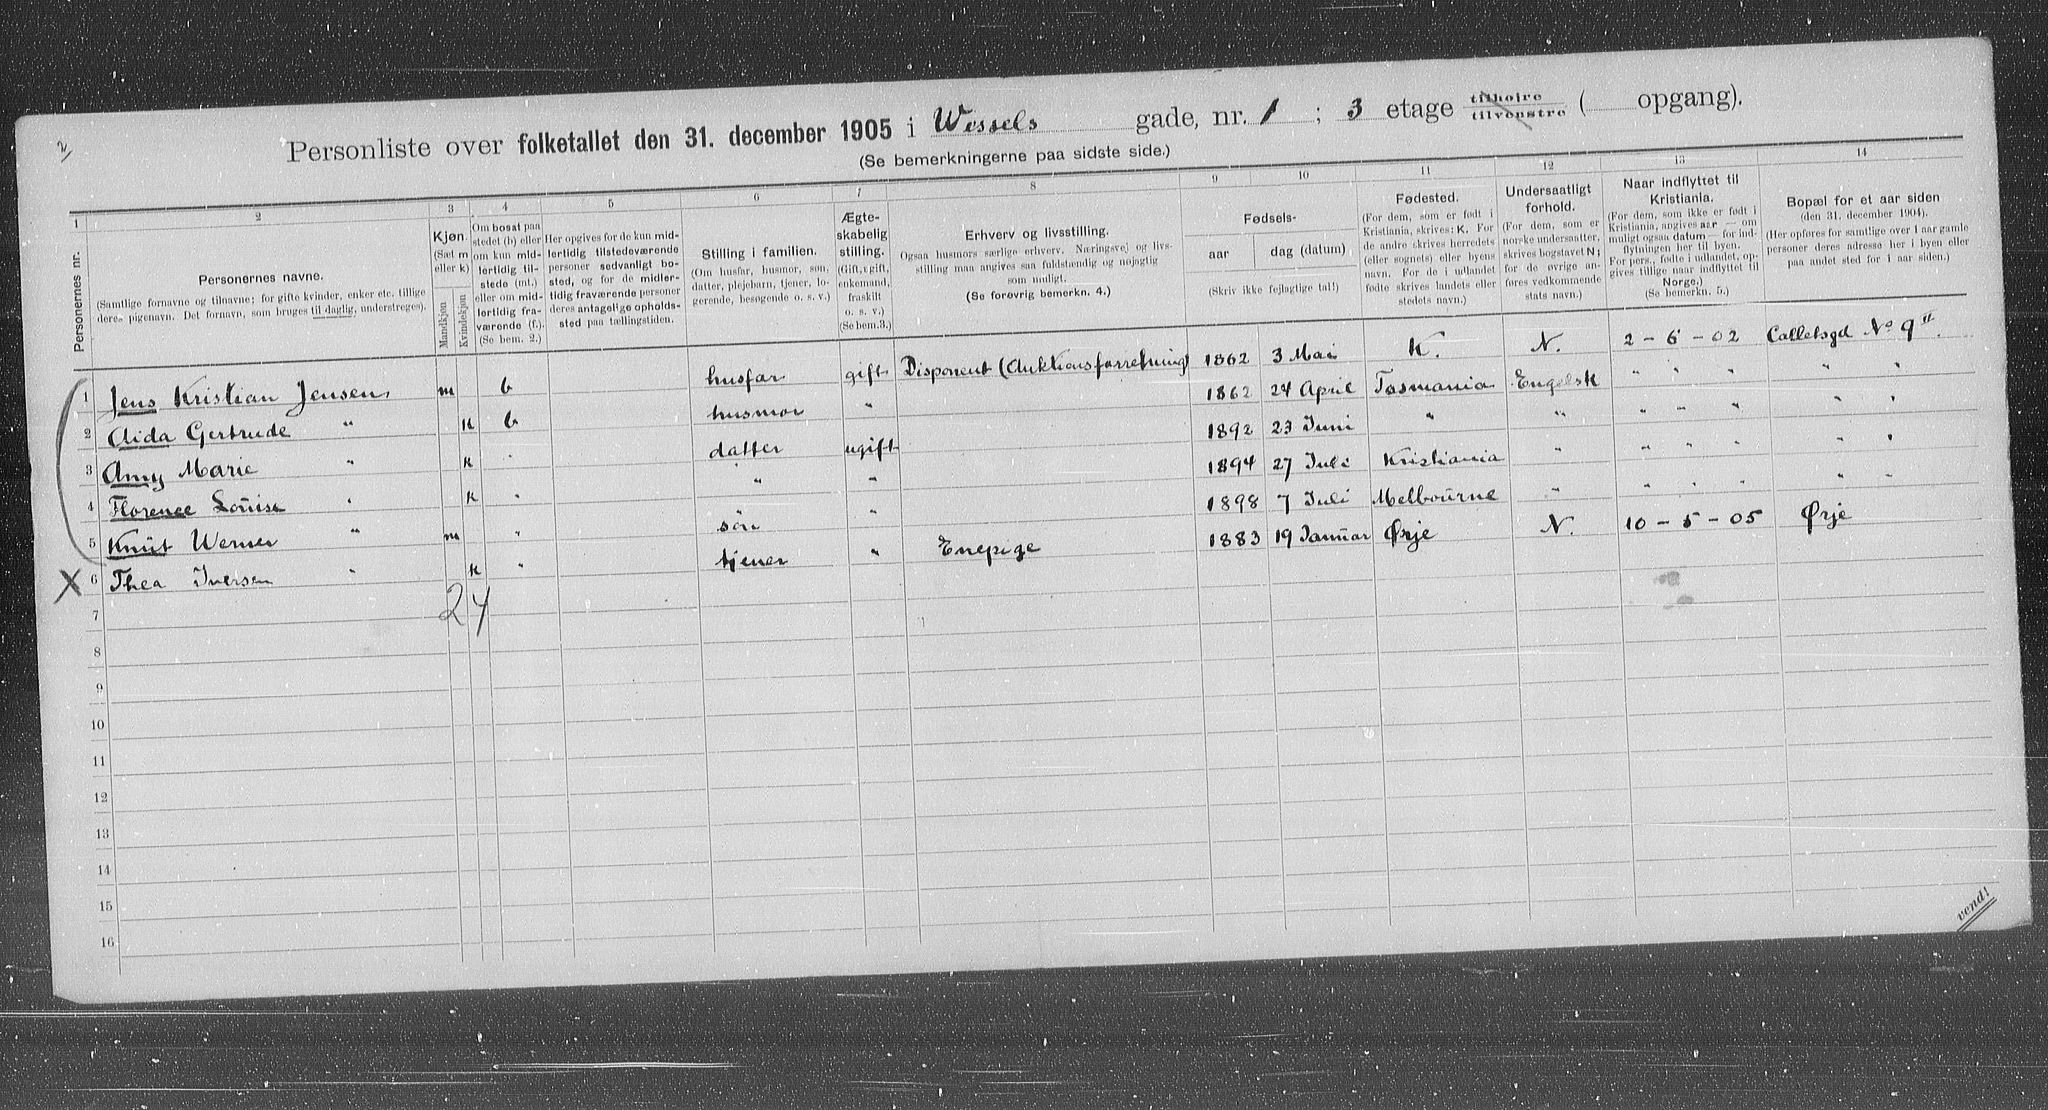 2
Personliste over folketallet den 31. december 1905 i Wessels gade, nr. 1 ; 3 etage tilhøire tilvenstre ( opgang).
(Se bemerkningerne paa sidste side.)
1 2 3 4 5 6 7 8 9 10 11 12 13 14
Personernes nr.
Personernes navne.
(Samtlige fornavne og tilnavne; for gifte kvinder, enker etc. tillige
deres pigenavn. Det fornavn, som bruges til daglig, understreges).
Kjøn.
(Sæt m
eller k)
Mandkjøn
Kvindekjøn
Om bosat paa
stedet (b) eller
om kun mid-
lertidig til-
stede (mt.)
eller om mid-
lertidig fra-
værende (f.)
(Se bem. 2.)
Her opgives for de kun mid-
lertidig tilstedeværende
personer sedvanligt bo-
sted, og for de midler-
tidig fraværende personer
deres antagelige opholds-
sted paa tællingstiden.
Stilling i familien.
(Om husfar, husmor, søn,
datter, plejebarn, tjener, lo-
gerende, besøgende o. s. v.)
Ægte-
skabelig
stilling.
(Gift, ugift,
enkemand,
fraskilt
o. s. v.)
(Se bem.3.)
Erhverv og livsstilling.
Ogsaa husmors særlige erhverv. Næringsvej og livs-
stilling maa angives saa fuldstændig og nøjagtig
som muligt.
(Se forøvrig bemerkn. 4.)
Fødsels-
aar dag (datum)
(Skriv ikke fejlagtige tal!)
Fødested.
(For dem, som er født i
Kristiania, skrives: K. For
de andre skrives herredets
(eller sognets) eller byens
navn. For de i udlandet
fødte skrives landets eller
stedets navn.)
Undersaatligt
forhold.
(For dem, som er
norske undersaatter,
skrives bogstavet N;
for de øvrige an-
føres vedkommende
stats navn.)
Naar indflyttet til
Kristiania.
(For dem, som ikke er født i
Kristiania, angives aar — om
muligt ogsaa datum — for ind-
flytningen her til byen.
For pers., fødte i udlandet, op-
gives tillige naar indflyttet til
Norge.)
(Se bemerkn. 5.)
Bopæl for et aar siden
(den 31. december 1904).
(Her opføres for samtlige over 1 aar gamle
personer deres adresse her i byen eller
paa andet sted for 1 aar siden.)
1 Jens Kristian Jensen m b husfar gift Disponent (Auktionsforretning) 1862 3 Mai K. N. 2-6-02 Calletsgd No 9 II
2 Aida Gertrude " k b husmor " 1862 24 April Tasmania Engelsk " " " " "
3 Amy Marie " k " datter ugift 1892 23 Juni " " " " " " "
4 Florence Louise " k " " " 1894 27 Juli Kristiania " " " " " "
5 Knut Werner " m " søn " 1898 7 Juli Melbourne " " " " " "
X 6 Thea Iversen " k " tjener " Enepige 1883 19 Januar Ørje N. 10-5-05 Ørje
7 2 4
8
9
10
11
12
13
14
15
16
vend!